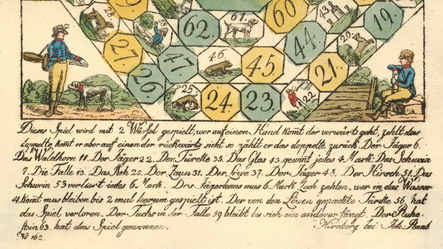 62.
61.
60
19.
27.
44.
20.
26.
46.
45.
21.
25
24
23.
22
Dieses Spiel wird mit 2 Würfel gespielt, wer auf einen Hund komt der vorwärts geht, zählt das
doppelte komt er aber auf einen der rückwärts sieht so zählt er das doppelte zurück. Der Jäger 6.
Das Waldhorn 11. Der Jäger 22. Der Fürst 35. Das Glas 43. gewint jedes 4 Mark. Das Schwein
7. Die Falle 13. Das Reh 20. Der 31. Der Löwe 37. Der Jäger 48. Der Hirsch 51. Das
Schwein 53 verliert jedes 6 Mark. Das Jägerhaus mus 6 Mark zahlen, war an das Wasser
41 komt mus bleiben bis 2 mal herum gespielt ist. Der von den Löwen 56, hat
das Spiel verloren. Der Fuchs in der Falle 39 bleibt bis ein anderer
63. hat das Spiel gewonnen. Nürnberg bei Joh.
No 162.